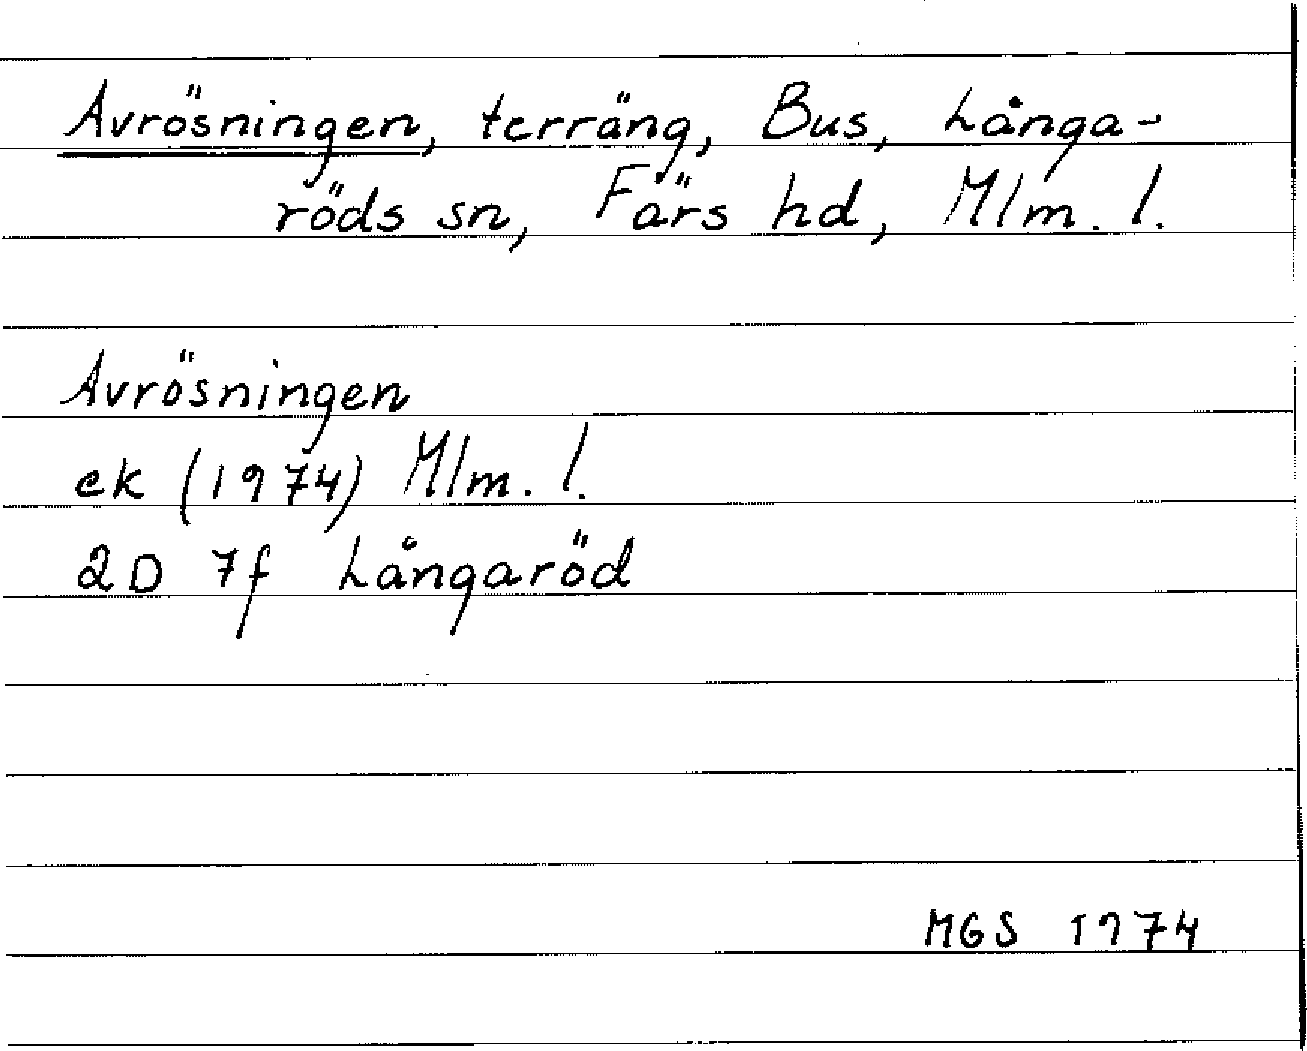 Avrösningen, terräng, Bus, Långa-
röds sn, Färs hd, Mlm. l.
Avrösningen
ek (1974) Mlm. l.
2D 7f Långaröd
MGS 1974